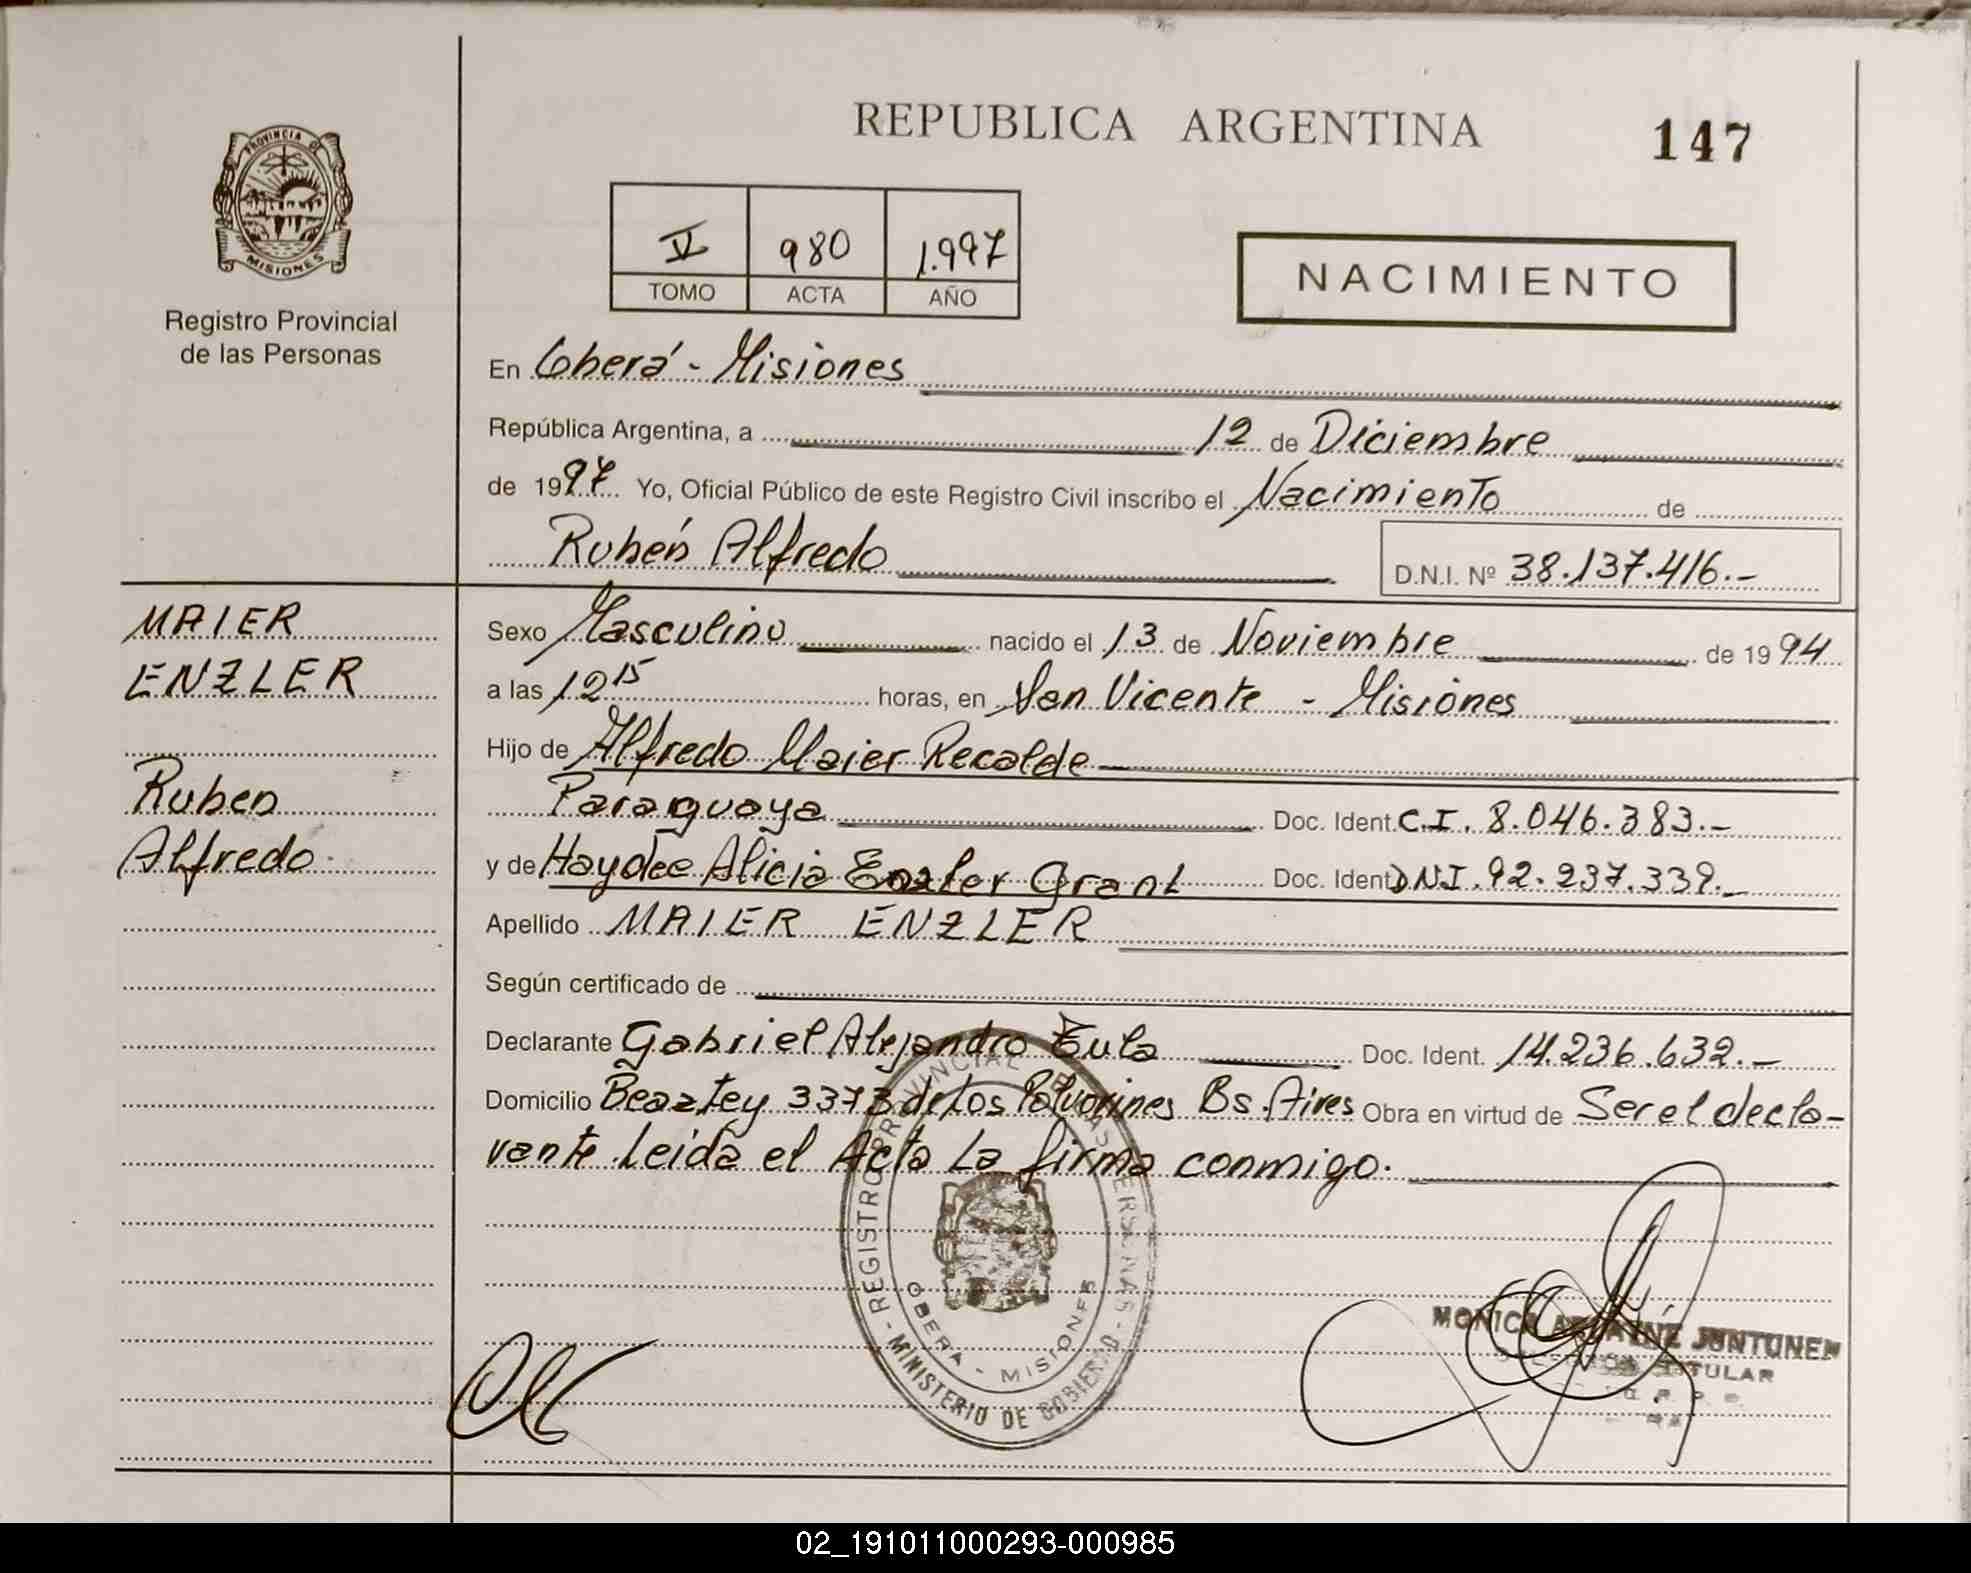 REPUBLICA ARGENTINA
147
PROVINCIA DE
MISIONES
Registro Provincial
de las Personas
V 980 1.997
TOMO ACTA AÑO
NACIMIENTO
En Oberá - Misiones
República Argentina, a 12 de Diciembre
de 1997 Yo, Oficial Público de este Registro Civil inscribo el Nacimiento de
Rubén Alfredo D.N.I. Nº 38.137.416.-
MAIER
ENZLER
Ruben
Alfredo
Sexo Masculino nacido el 13 de Noviembre de 1994
a las 12 15 horas, en San Vicente - Misiones
Hijo de Alfredo Maier Recalde
Paraguaya Doc. Ident. C.I. 8.046.383.-
y de Haydee Alicia Enzler Grant Doc. Ident DNI. 92.237.339.-
Apellido MAIER ENZLER
Según certificado de
Declarante Gabriel Alejandro Eula Doc. Ident. 14.236.632.-
Domicilio Beaztey 3373 de Los Polvorines Bs. Aires Obra en virtud de Ser el decla-
rante. Leida el Acta La firma conmigo.
REGISTRO PROVINCIAL DE LAS PERSONAS - MINISTERIO DE GOBIERNO -
OBERA - MISIONES
MONICA JUNTUNEN
TITULAR
02_191011000293-000985